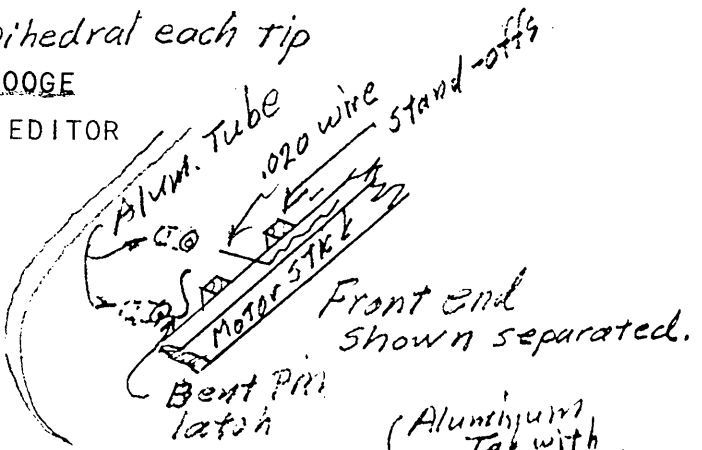 Dihedral each tip
OOGE
EDITOR
Alum. Tube
.020 wire
Stand-offs
Motor STK
Front end
Shown separated.
Bent Pin
latch
(Aluminum
with